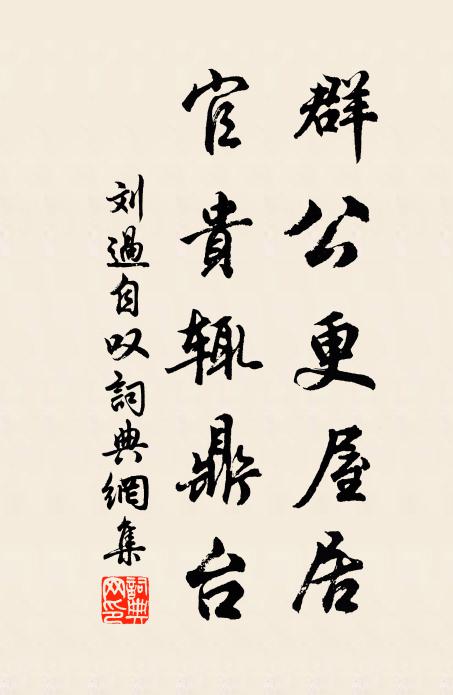 群公更屋居
官貴輒鼎台
刘過自叹詞典網集
詞典網印